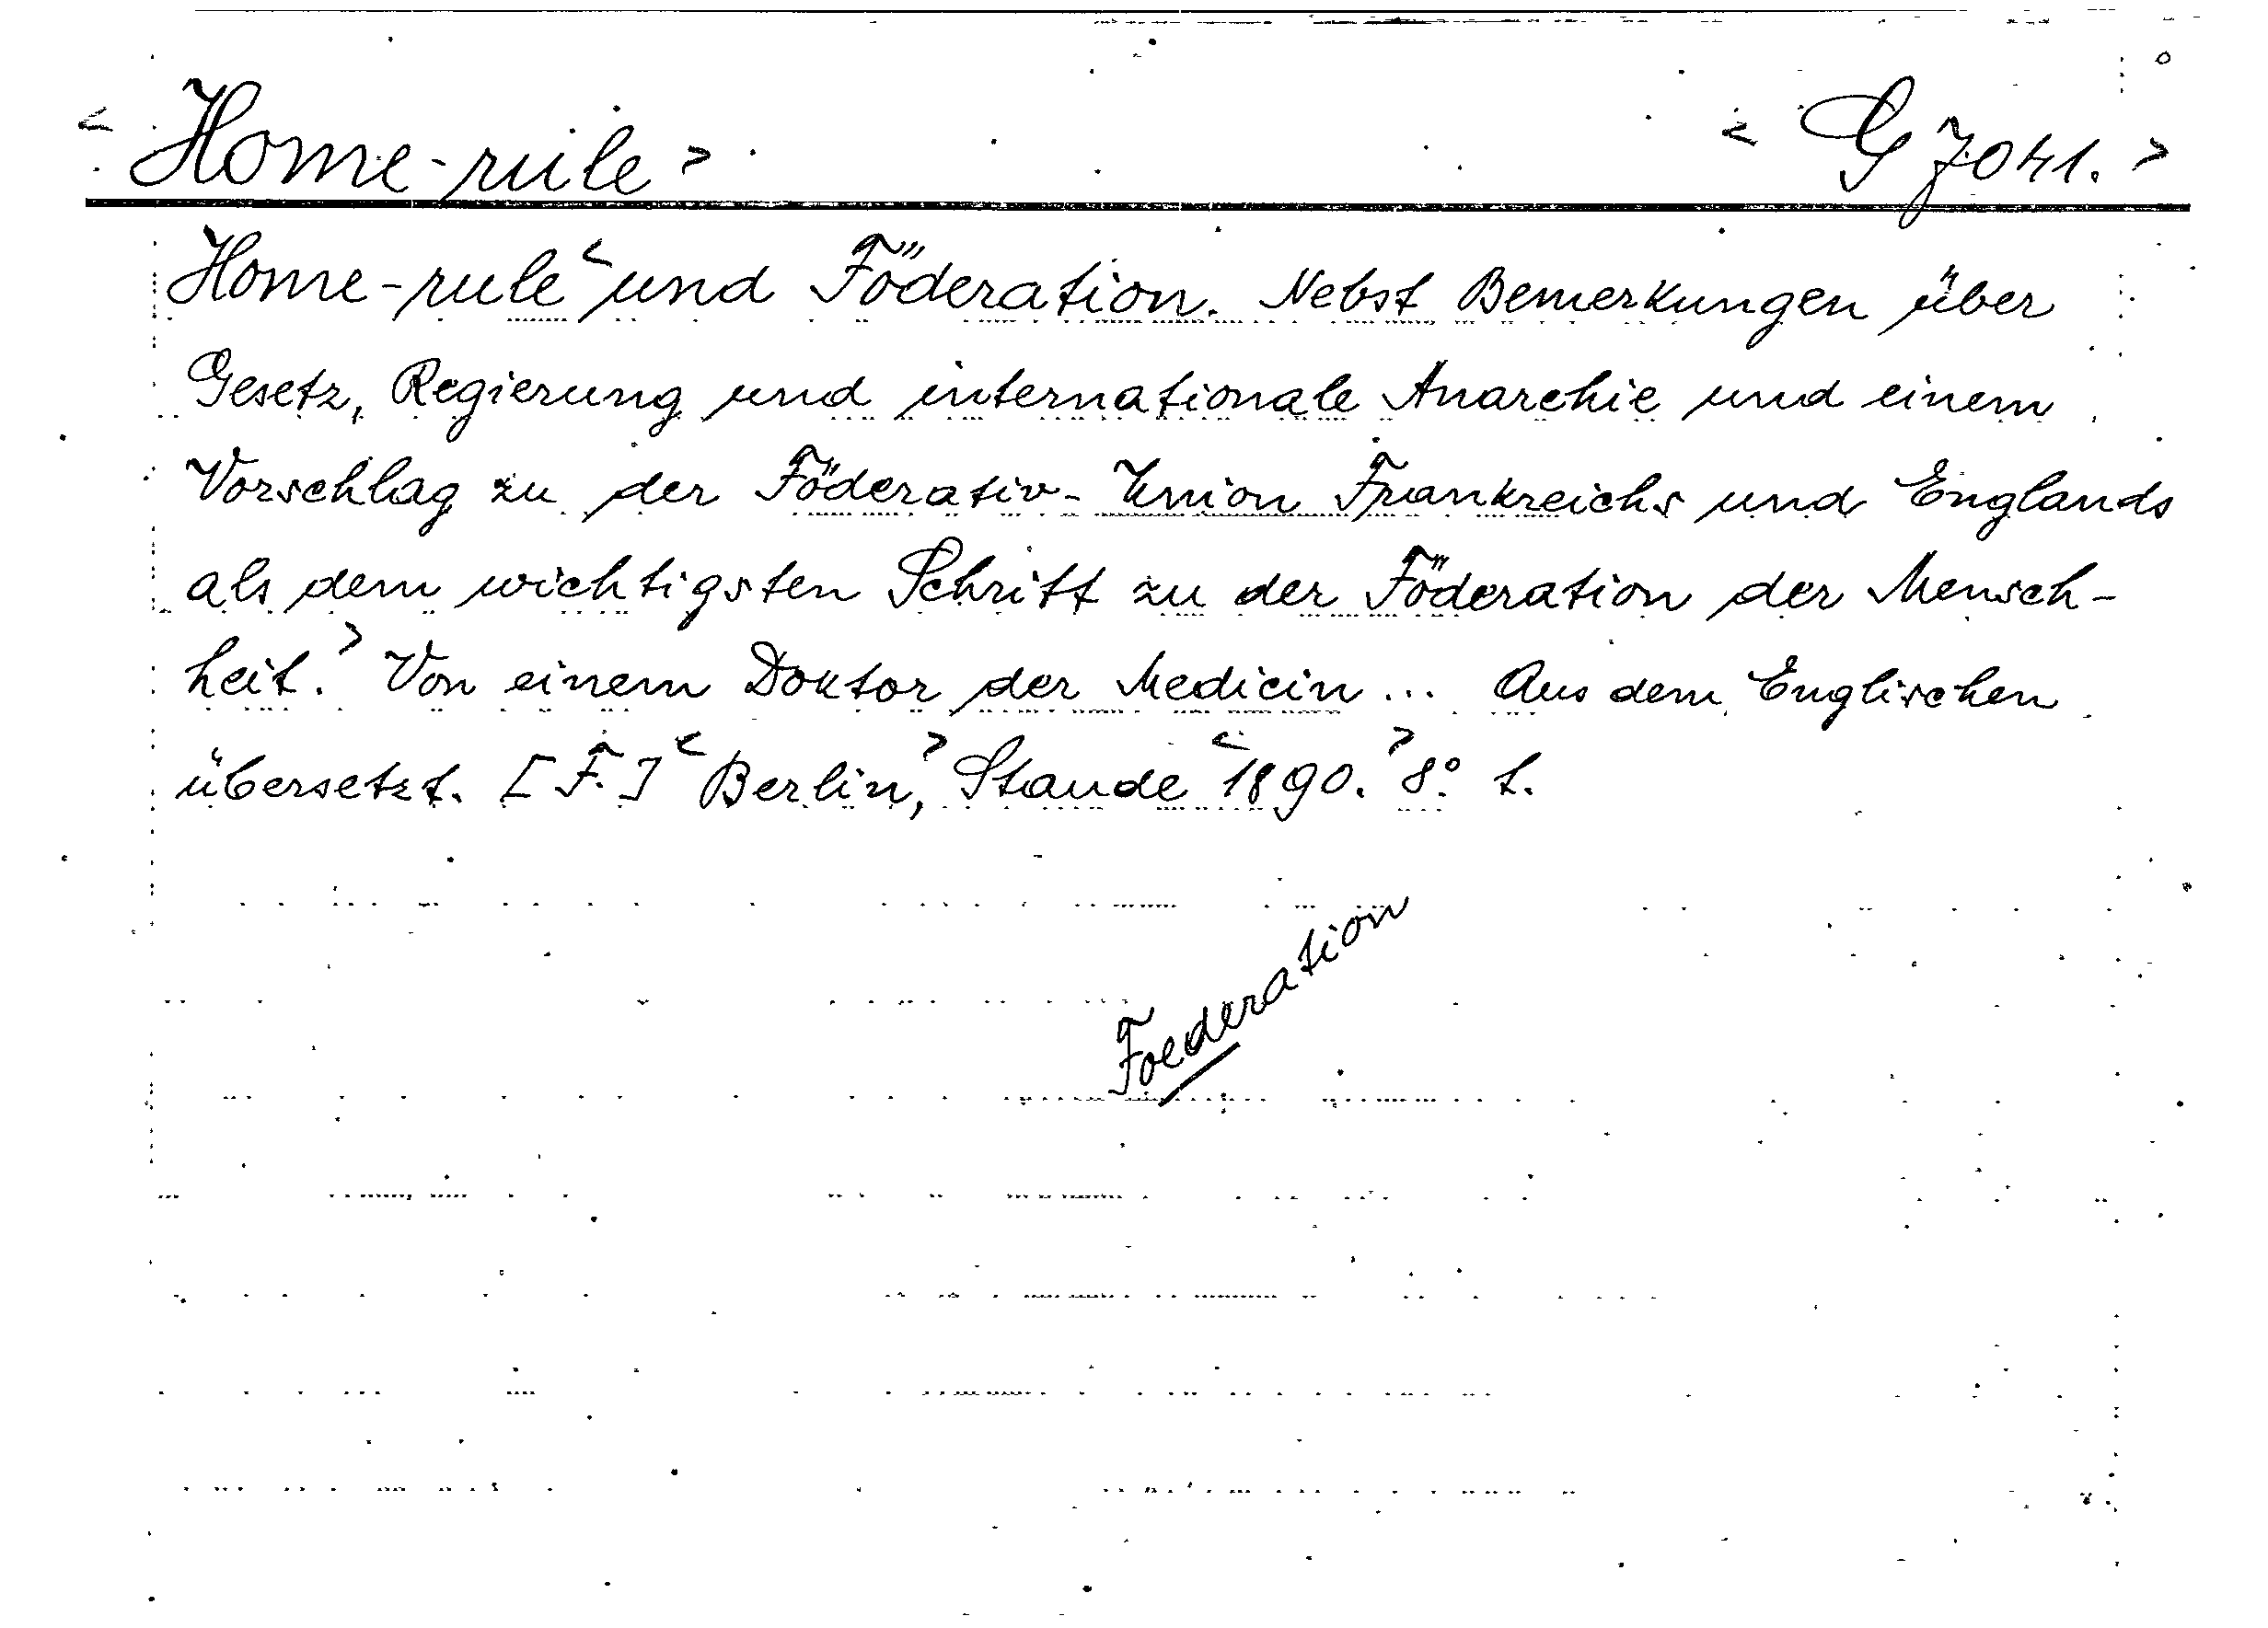 < Home-rule > < G 7041. >
Home-rule < und Föderation. Nebst Bemerkungen über
Gesetz, Regierung und internationale Anarchie und einem
Vorschlag zu der Föderativ-Union Frankreichs und Englands
als dem wichtigsten Schritt zu der Föderation der Mensch-
heit. > Von einem Doktor der Medicin ... Aus dem Englischen
übersetzt. [F.] < Berlin, > Staude < 1890. > 8° t.
Foederation